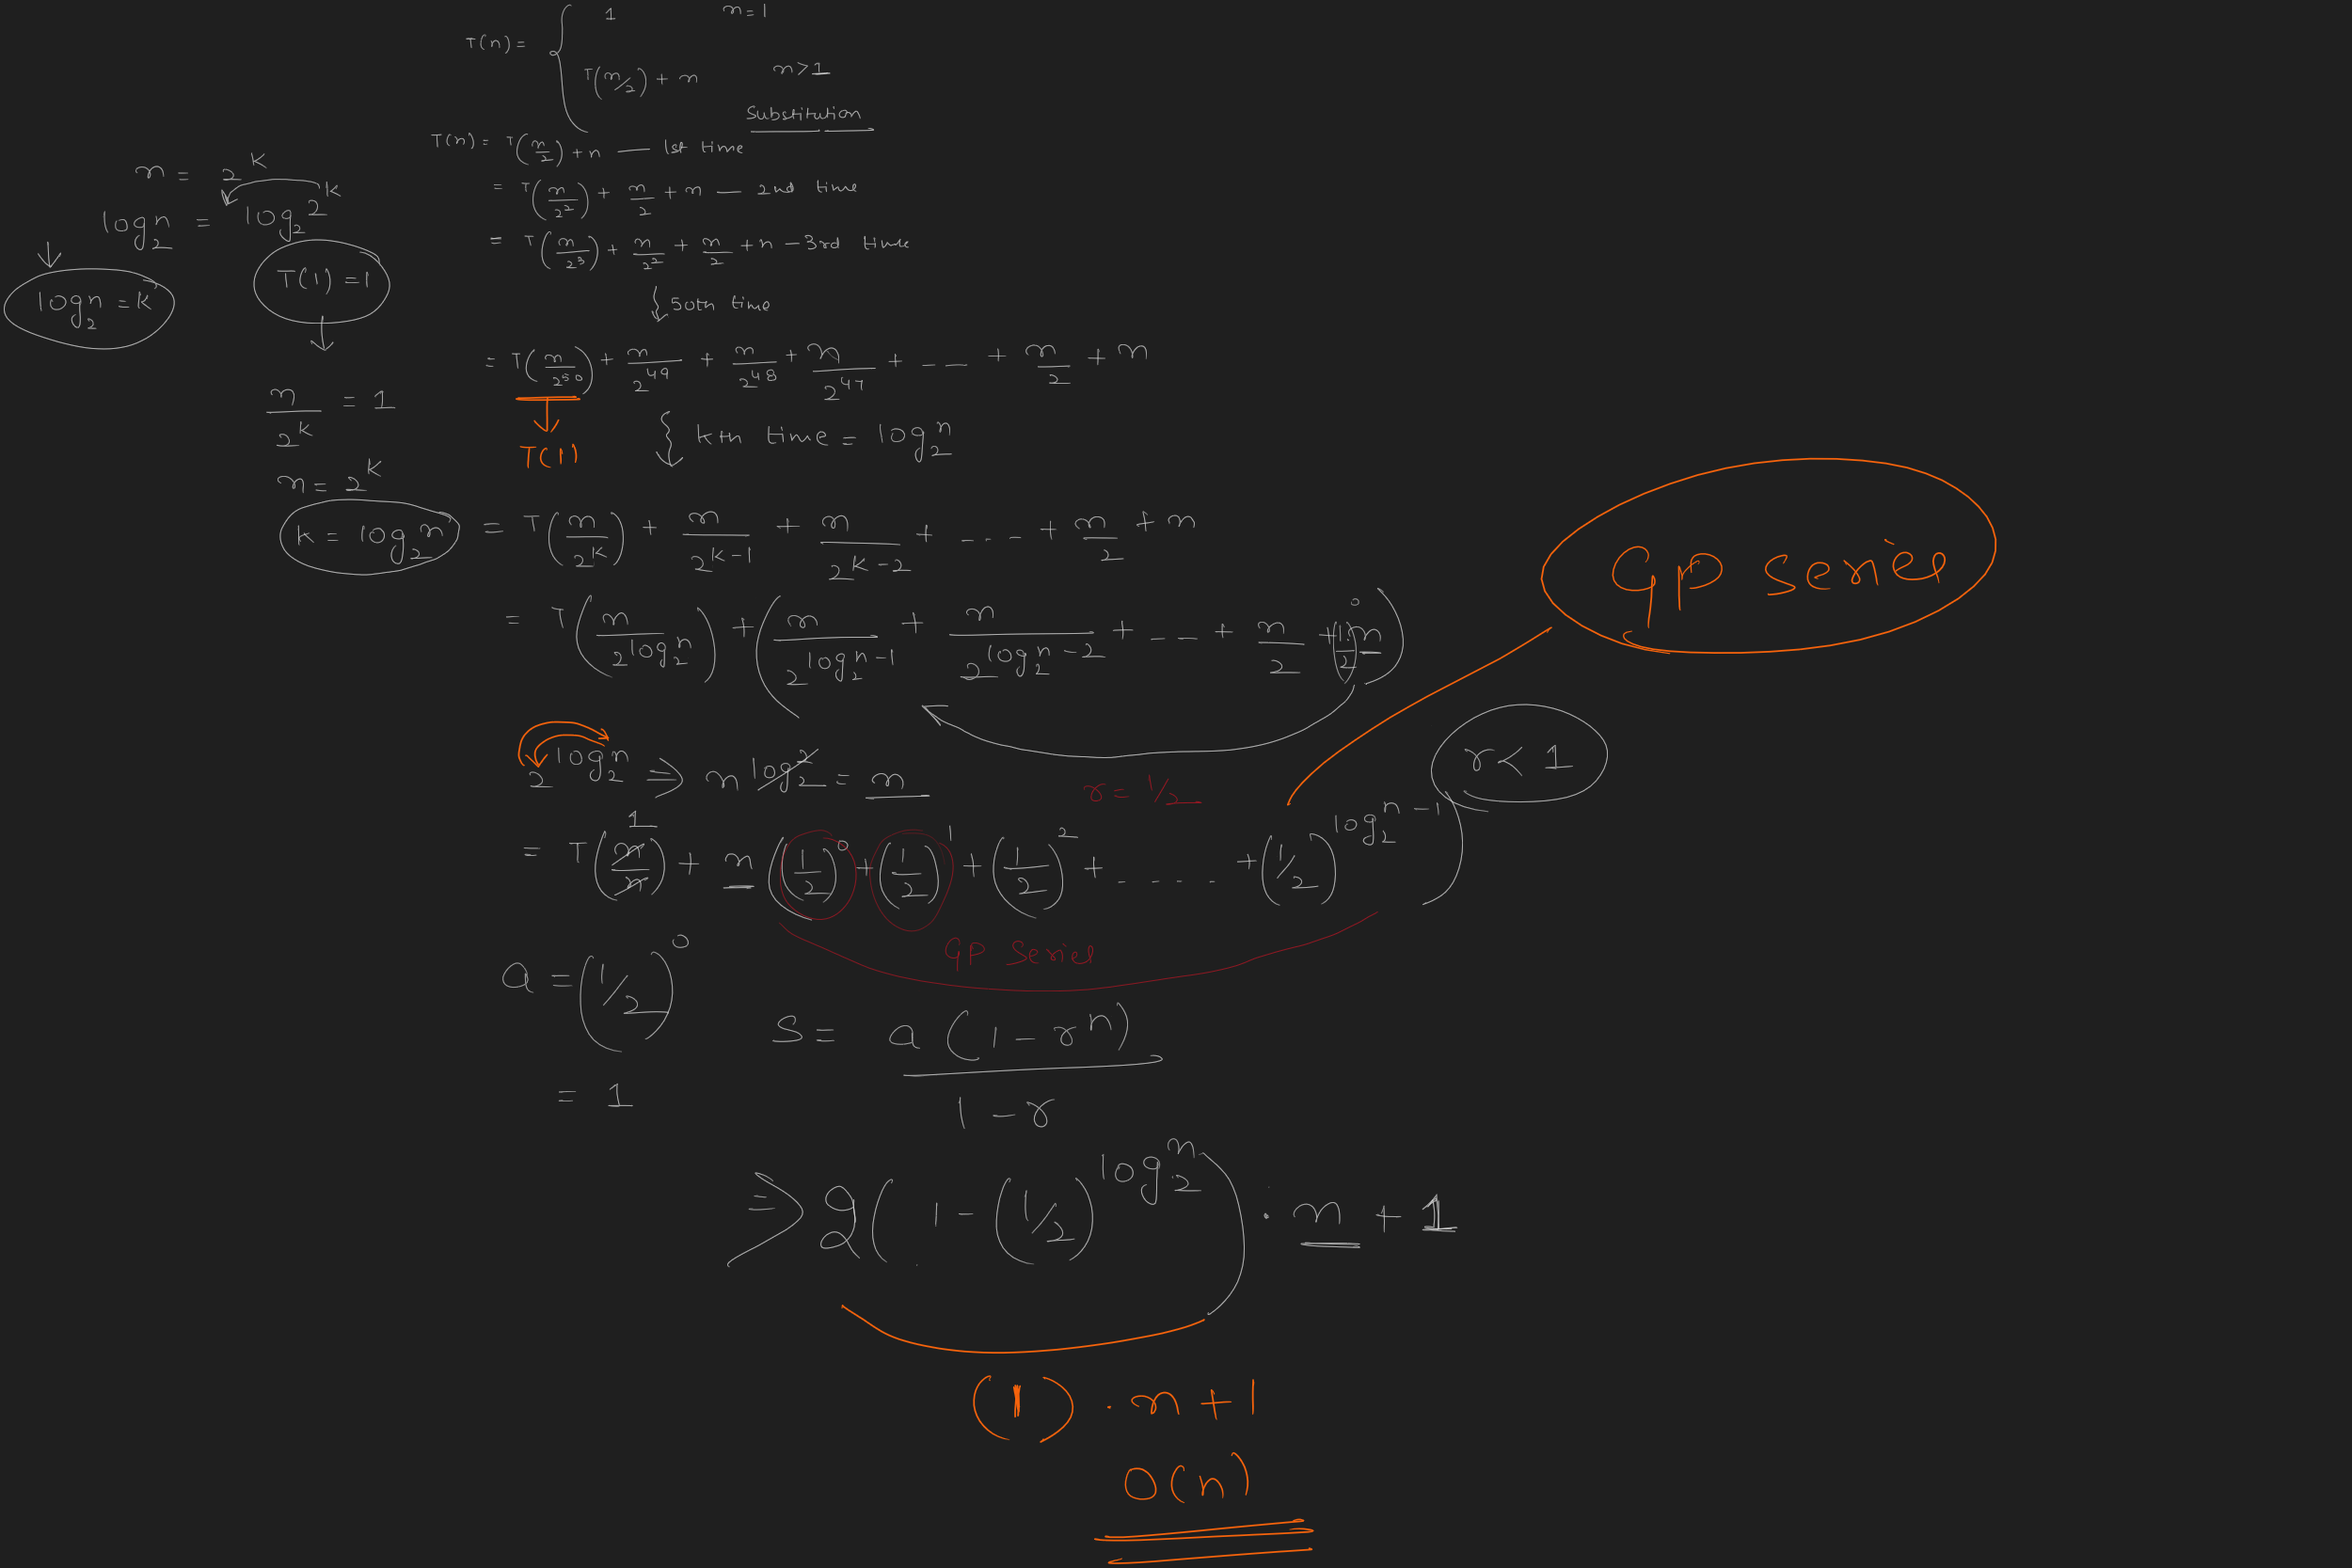 T(n) = { 1 n=1
T(n/2) + n n>1
Substitution
T(n) = T(n/2) + n — 1st time
= T(n/2^2) + n/2 + n — 2nd time
= T(n/2^3) + n/2^2 + n/2 + n — 3rd time
50th time
= T(n/2^50) + n/2^49 + n/2^48 + n/2^47 + -- + n/2 + n
T(1)
kth time = log_2 n
= T(n/2^k) + n/2^(k-1) + n/2^(k-2) + --- + n/2 + n
n = 2^k
log_2 n = log_2 2^k
log_2 n = k
T(1) = 1
n/2^k = 1
n = 2^k
k = log_2 n
= T(n/2^(log_2 n)) + (n/2^(log_2 n - 1) + n/2^(log_2 n - 2) + --- + n/2 + (1/2)^0 n)
GP Series
2^(log_2 n) => n^(log_2 2) = n
r = 1/2
r < 1
1
= T(n/n) + n((1/2)^0 + (1/2)^1 + (1/2)^2 + ---- + (1/2)^(log_2 n - 1))
GP Series
a = (1/2)^0
= 1
S = a(1 - r^n)/(1 - r)
=> 2(1 - (1/2)^(log_2 n)) . n + 1
(1) . n + 1
O(n)